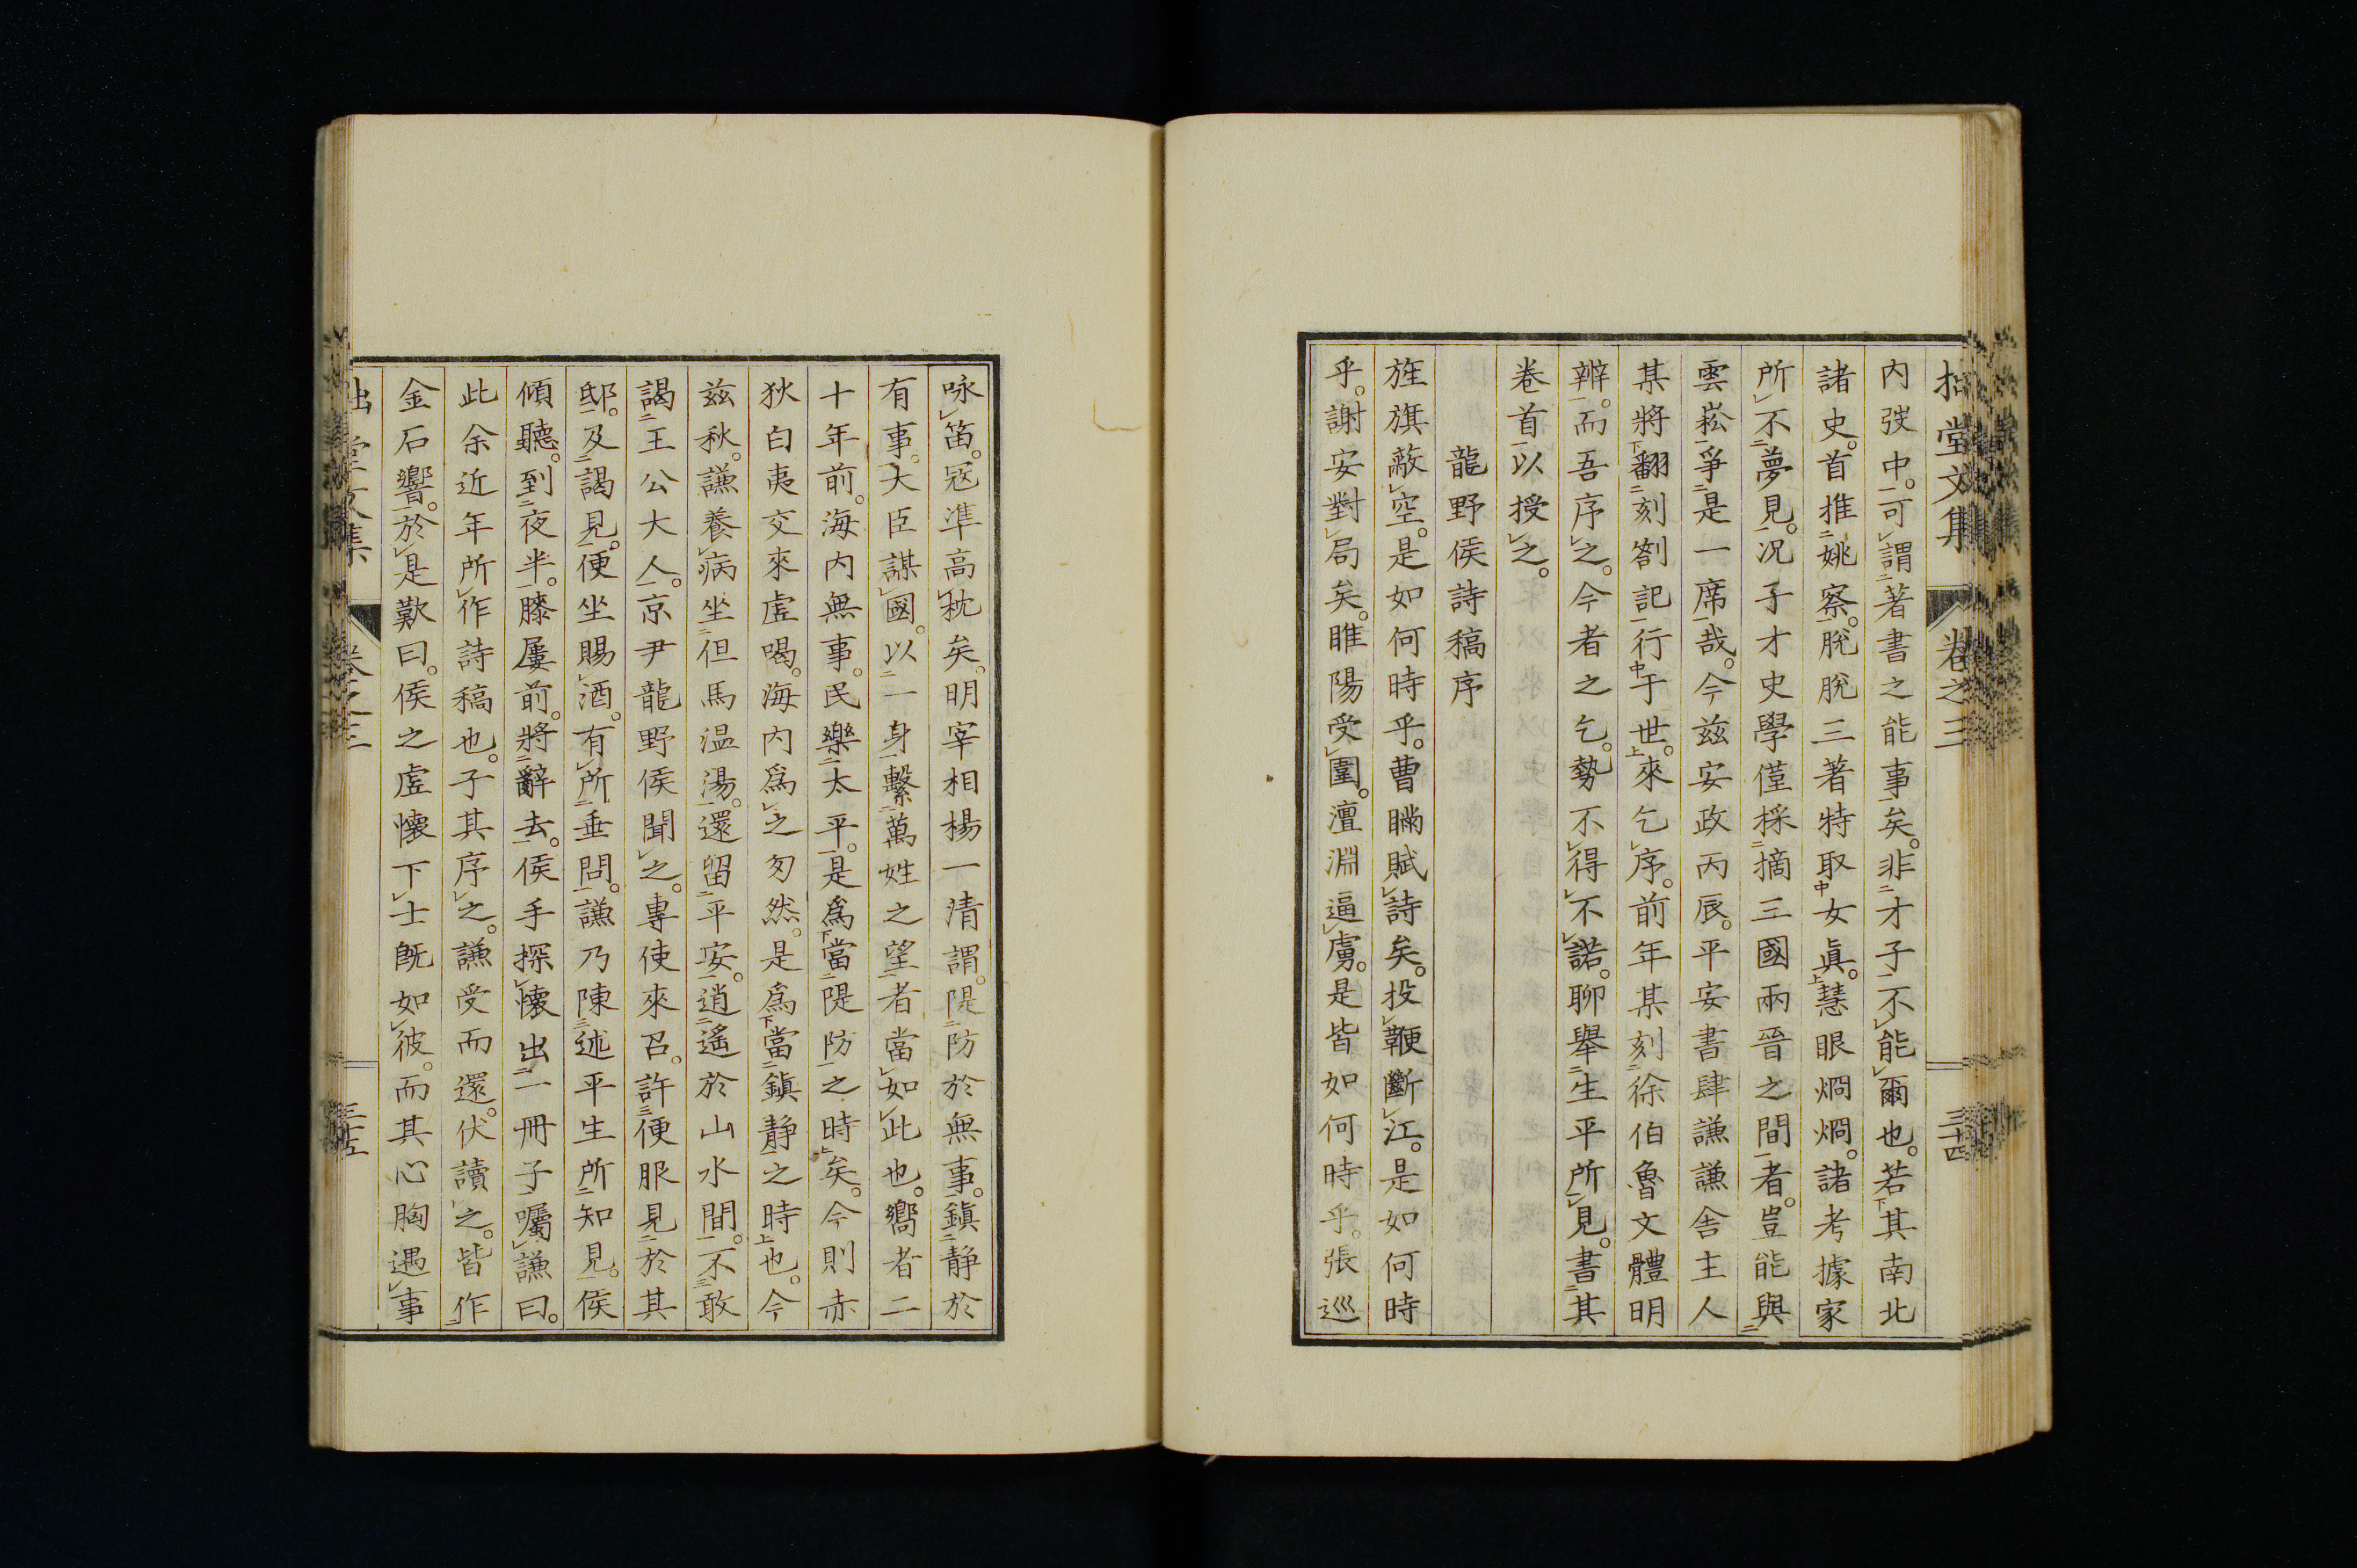 拙堂文集 卷之三 三十四
內弢中。可謂著書之能事矣。非才子不能爾也。若其南北
諸史。首推姚察。脫脫三著特取女眞。慧眼烱烱。諸考據家
所不夢見。況子才史學僅採摘三國兩晉之間者。豈能與
雲崧爭是一席哉。今茲安政丙辰。平安書肆謙謙舍主人
某將翻刻劄記行于世。來乞序。前年某刻徐伯魯文體明
辨。而吾序之。今者之乞。勢不得不諾。聊舉生平所見。書其
卷首以授之。
龍野侯詩稿序
旌旗蔽空。是如何時乎。曹瞞賦詩矣。投鞭斷江。是如何時
乎。謝安對局矣。睢陽受圍。澶淵逼虜。是皆如何時乎。張巡
咏笛。寇準高枕矣。明宰相楊一清謂。隄防於無事。鎭靜於
有事。大臣謀國。以一身繫萬姓之望者當如此也。嚮者二
十年前。海內無事。民樂太平。是爲當隄防之時矣。今則赤
狄白夷交來虛喝。海內爲之匆然。是爲當鎭靜之時也。今
茲秋。謙養病坐但馬温湯。還留平安。逍遙於山水間。不敢
謁王公大人。京尹龍野侯聞之。專使來召。許便服見於其
邸。及謁見。便坐賜酒。有所垂問。謙乃陳述平生所知見。侯
傾聽。到夜半。膝屢前。將辭去。侯手探懷出一冊子囑謙曰。
此余近年所作詩稿也。子其序之。謙受而還。伏讀之。皆作
金石響。於是歎曰。侯之虛懷下士旣如彼。而其心胸遇事
拙堂文集 卷之三 三十五